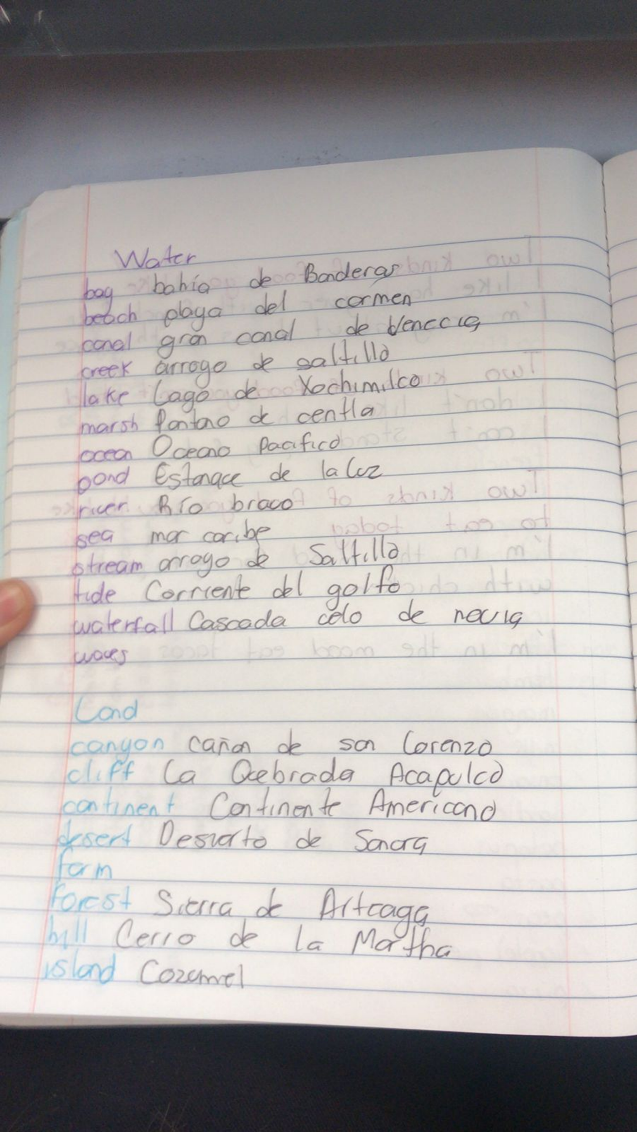 Water
bay bahía de Banderas
beach playa del carmen
canal gran canal de Venecia
creek arroyo de saltillo
lake Lago de Xochimilco
marsh Pantano de centla
ocean Oceano Pacifico
pond Estanque de la luz
river Río bravo
sea mar caribe
stream arroyo de Saltillo
tide Corriente del golfo
waterfall Cascada colo de novia
waves
Land
canyon cañon de san Lorenzo
cliff La Quebrada Acapulco
continent Continente Americano
desert Desierto de Sonora
farm
forest Sierra de Arteaga
hill Cerro de la Martha
island Cozumel